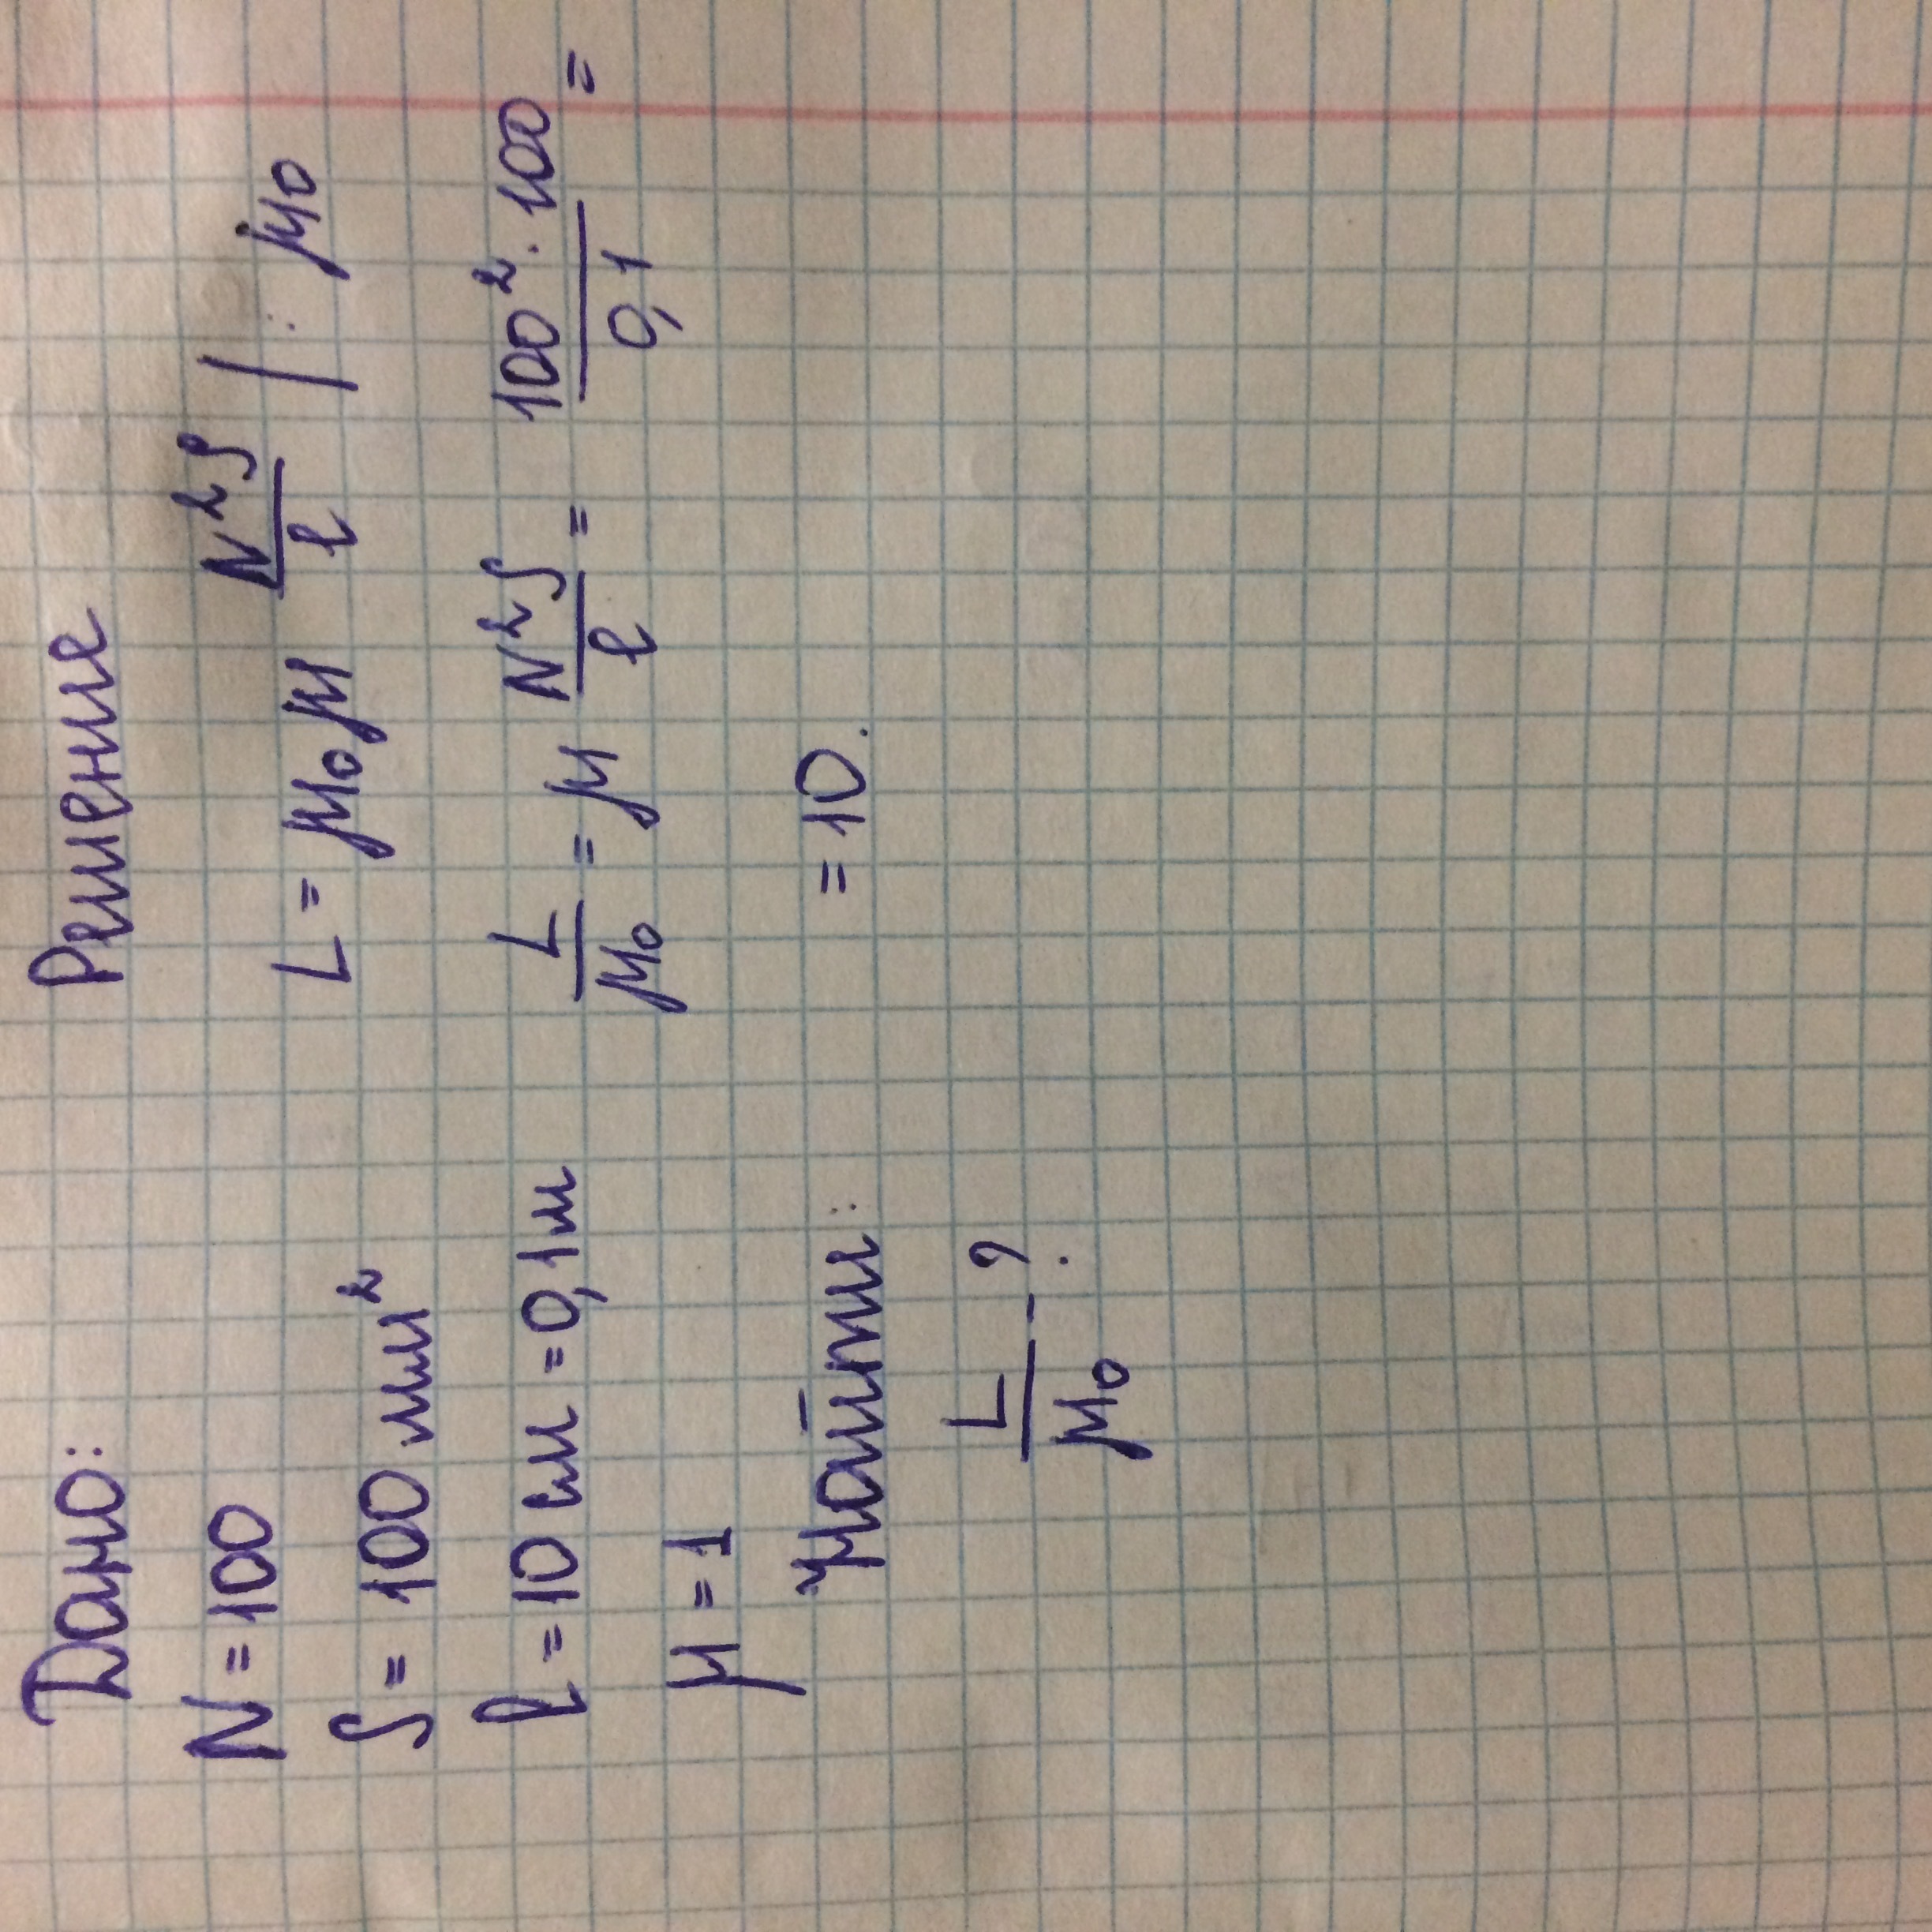 Дано:
N = 100
S = 100 мм²
l = 10 см = 0,1 м
μ = 1
Найти:
L/μ₀ - ?
Решение
L = μ₀μ N²S/l | : μ₀
L/μ₀ = μ N²S/l = 100² · 100/0,1 =
= 10.